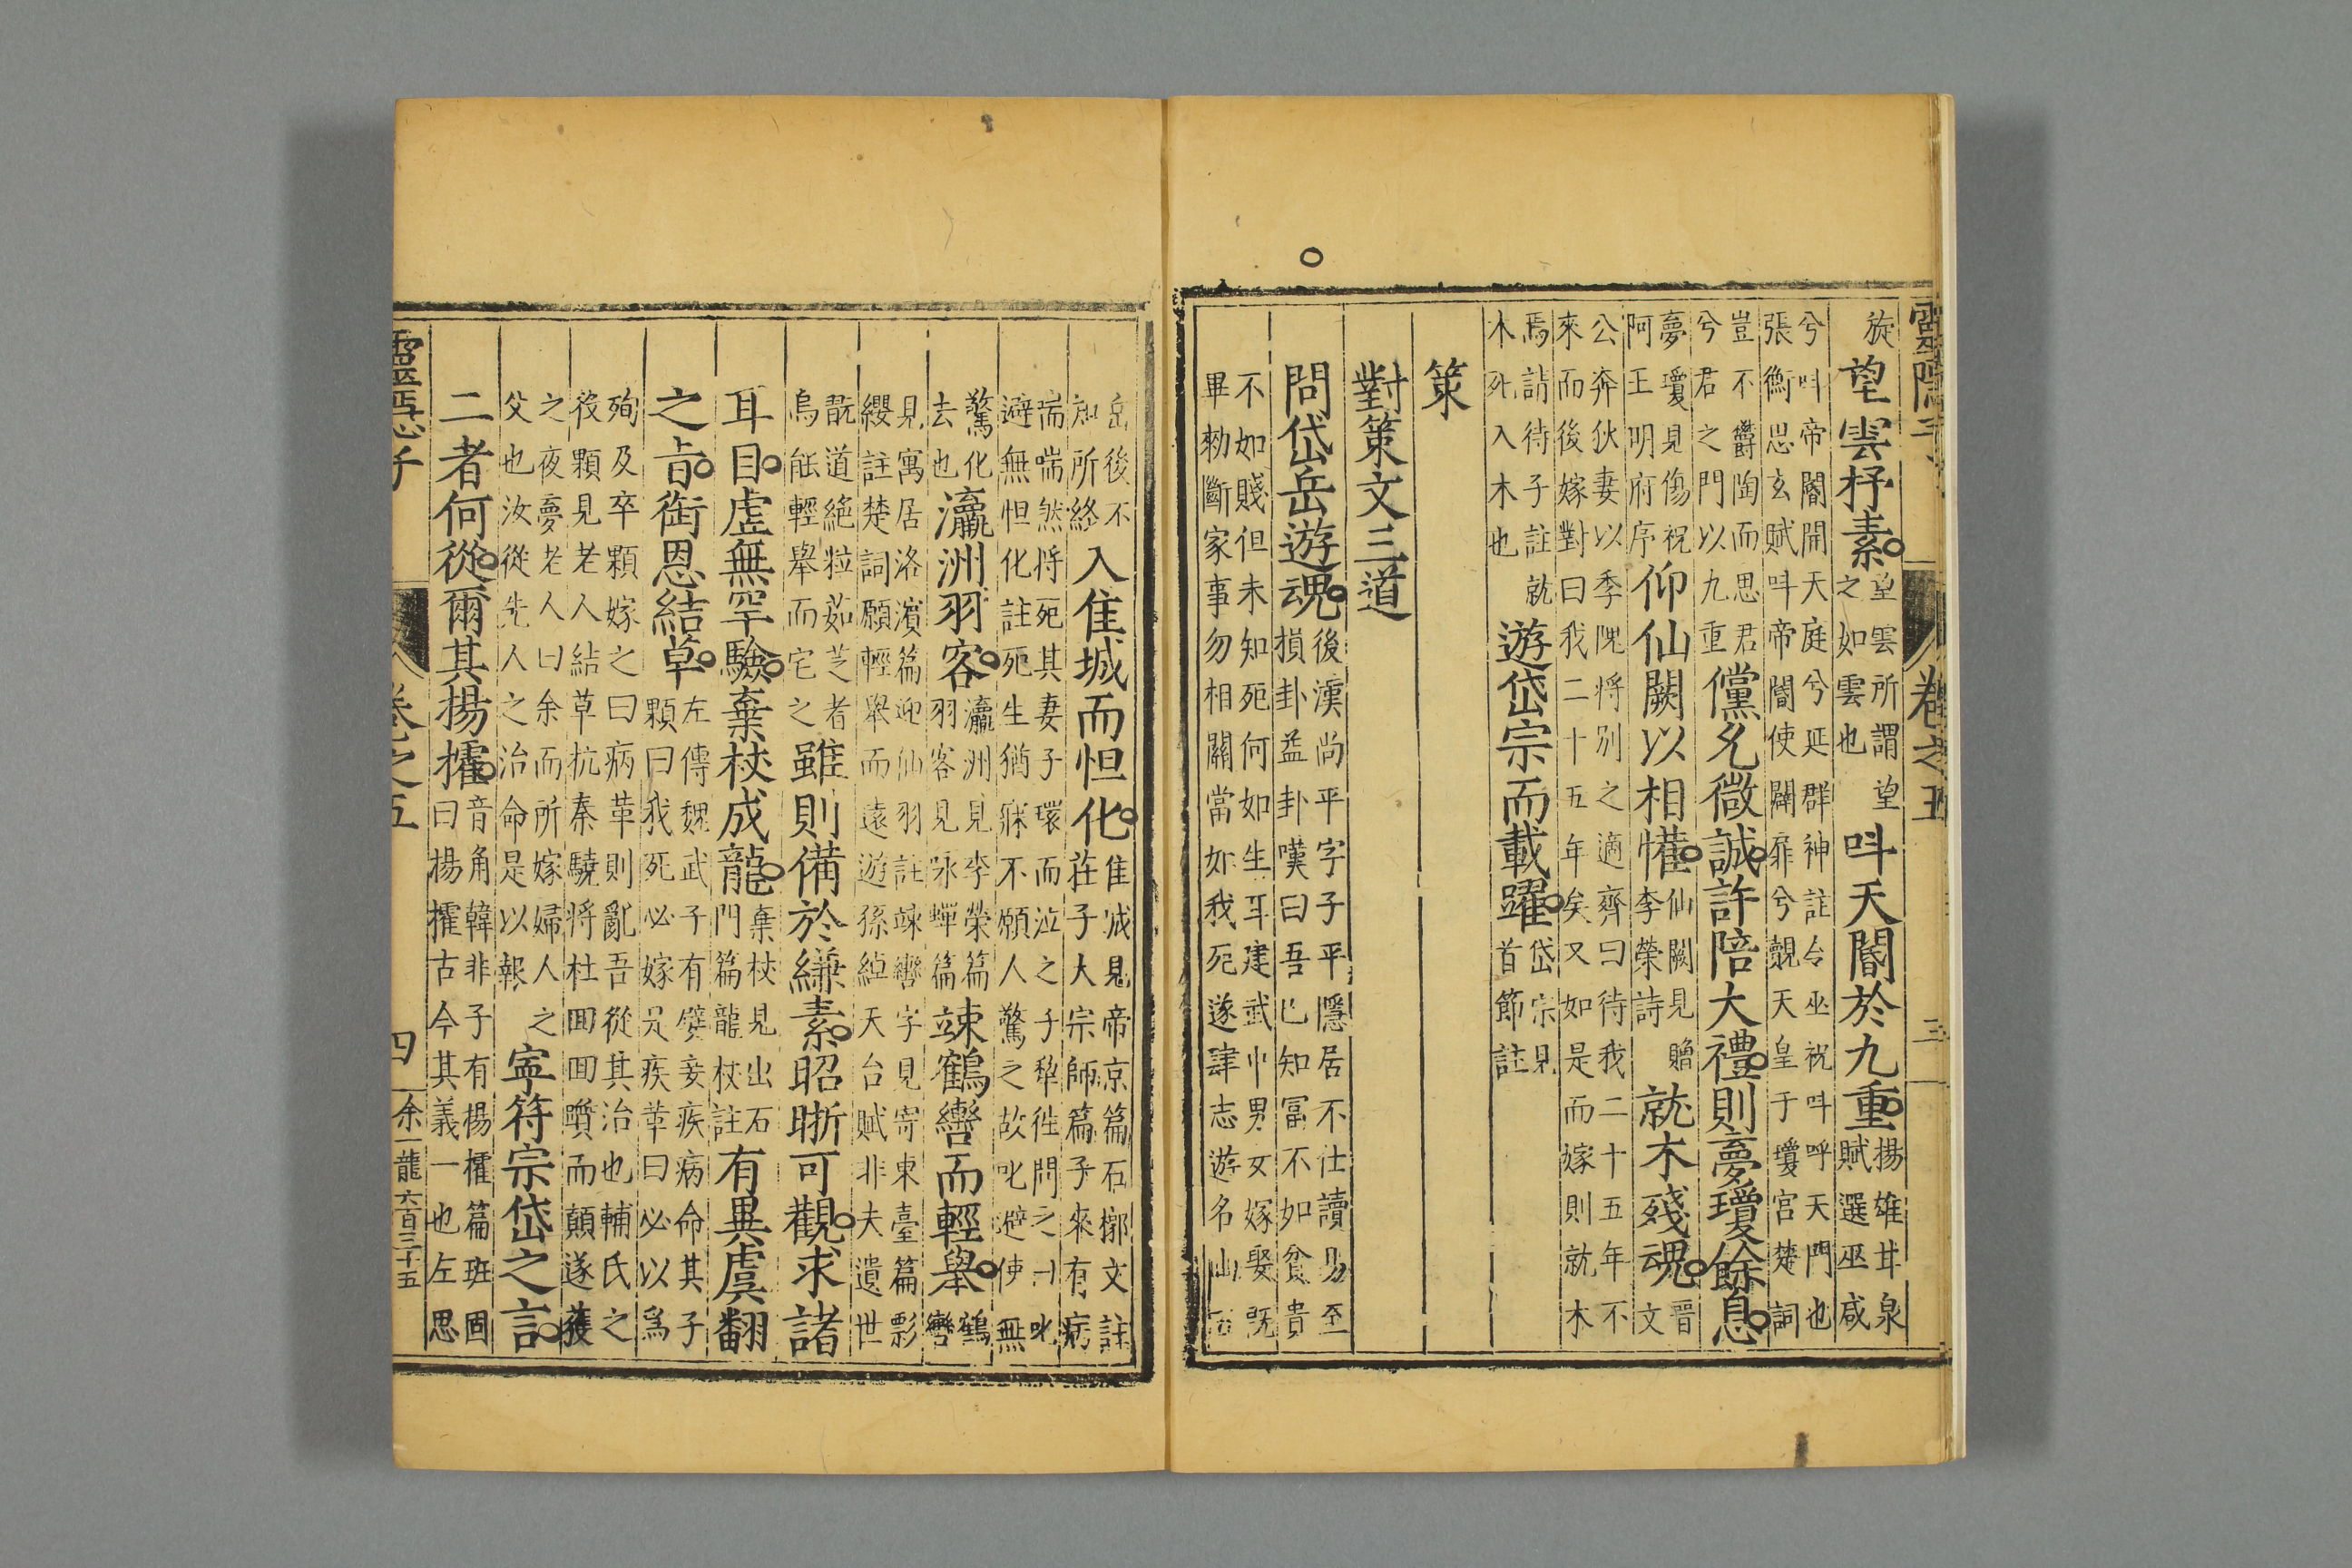 靈隱子 卷之五 三
旋 望雲杼素 望雲所謂望
之如雲也 呌天閽於九重 揚雄甘泉
賦選巫咸
兮呌帝閽開天庭兮延群神註令巫祝呌呼天門也
張衡思玄賦呌帝閽使闢扉兮覿天皇于瓊宮楚詞
豈不欝陶而思君
兮君之門以九重 儻允微誠許陪大禮則夢瓊餘息
夢瓊見傷祝
阿王明府序 仰仙闕以相懽 仙闕見贈
李榮詩 就木殘魂 晋
文
公奔狄妻以季隗將別之適齊曰待我二十五年不
來而後嫁對曰我二十五年矣又如是而嫁則就木
焉請待子註就
木死入木也 遊岱宗而載躍 岱宗見
首節註
策
對策文三道
問岱岳遊魂 後漢尚平字子平隱居不仕讀易至
損卦益卦嘆曰吾已知冨不如貧貴
不如賤但未知死何如生耳建武中男女嫁娶旣
畢勑斷家事勿相關當如我死遂肆志遊名山五
岳後不
知所終 入隹城而怛化 隹城見帝京篇石槨文註
莊子大宗師篇子來有病
喘喘然將死其妻子環而泣之子犂徃問之曰叱
避無怛化註死生猶寐不願人驚之故叱避使無
驚化
去也 瀛洲羽客 瀛洲見李榮篇
羽客見咏蟬篇 竦鶴轡而輕舉 鶴
轡
見寓居洛濱篇迎仙羽註竦轡字見寄東臺篇影
纓註楚詞願輕舉而遠遊孫綽天台賦非夫遺世
翫道絶粒茹芝者
烏能輕舉而宅之 雖則備於縑素昭晣可觀求諸
耳目虛無罕驗棄杖成龍 棄杖見出石
門篇龍杖註 有異虞翻
之旨銜恩結草 左傳魏武子有嬖妾疾病命其子
顆曰我死必嫁是疾革曰必以爲
殉及卒顆嫁之曰病革則亂吾從其治也輔氏之
役顆見老人結草抗秦驍將杜回回躓而顛遂獲
之夜夢老人曰余而所嫁婦人之
父也汝從先人之治命是以報 寧符宗岱之言
二者何從爾其揚搉 音角韓非子有揚搉篇班固
曰揚搉古今其義一也左思
卷之五 四 余一龍 六百三十五